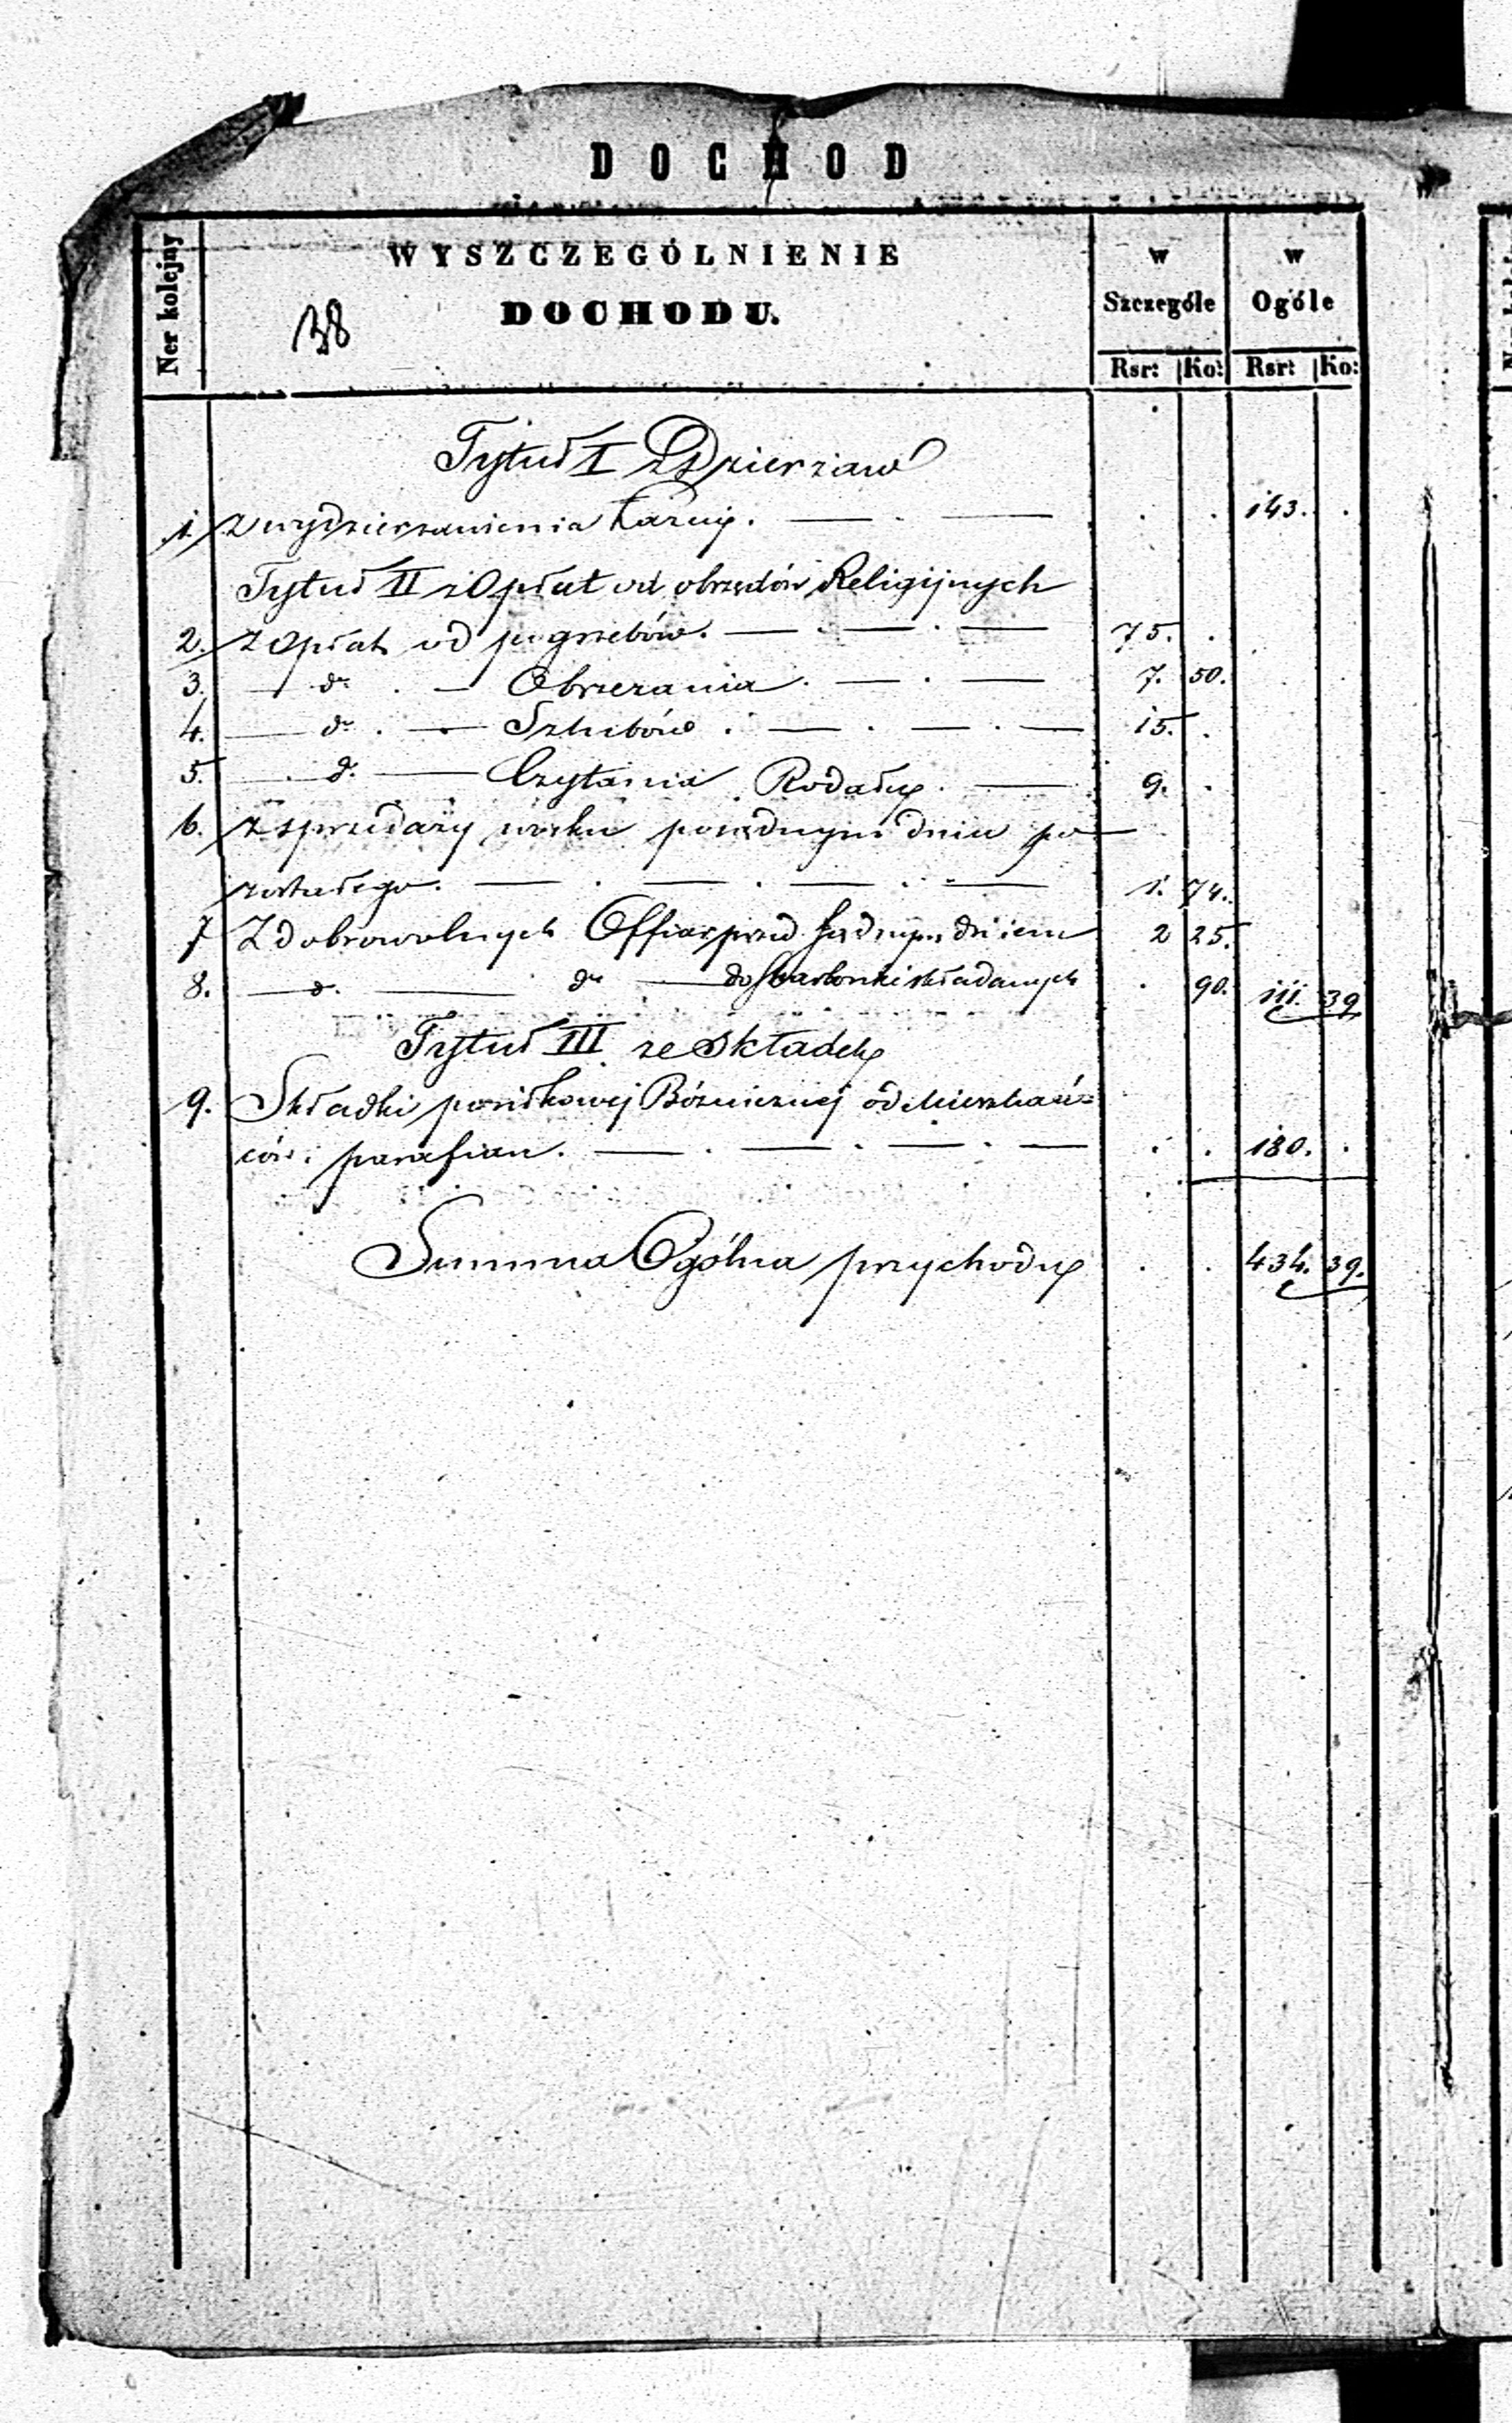 DOCHOD
Ner kolejny
WYSZCZEGÓLNIENIE
DOCHODU.
38
w Szczególe
w Ogóle
Rsr: Ko: Rsr: Ko:
Tytuł I z Dzierżaw
1. z wydzierżawienia Łaźni. — . — . . 143. .
Tytuł II z Opłat od obrzędów Religijnych
2. z Opłat od pogrzebów. — . — . — 75. .
3. — do . — Obrzezania . — . — 7. 50.
4. — do . — Szlubów . — . — . — 15. .
5. — . do — Czytania Rodału . — 9. .
6. z sprzedaży wosku po sądnym dniu po-
zostałego. — . — . — . — 1. 74.
7 Z dobrowolnych Offiar przed Sądnym dniem 2 25.
8. — do. — do — do Skarbonki składanych . 90. 111. 39
Tytuł III ze Składek
9. Składki posiłkowej Bóżnicznej od Mieszkań=
ców i parafian. — . — . — . — . . 180. .
Summa Ogólna przychodu . . 434. 39.